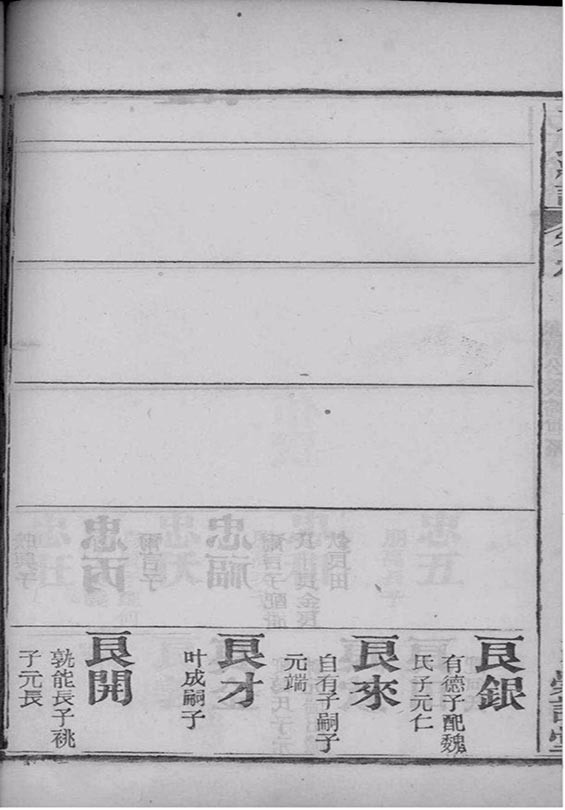 良銀
有德子配魏
氏子元仁
良來
自有子嗣子
元端
良才
叶成嗣子
良開
執能長子祧
子元長